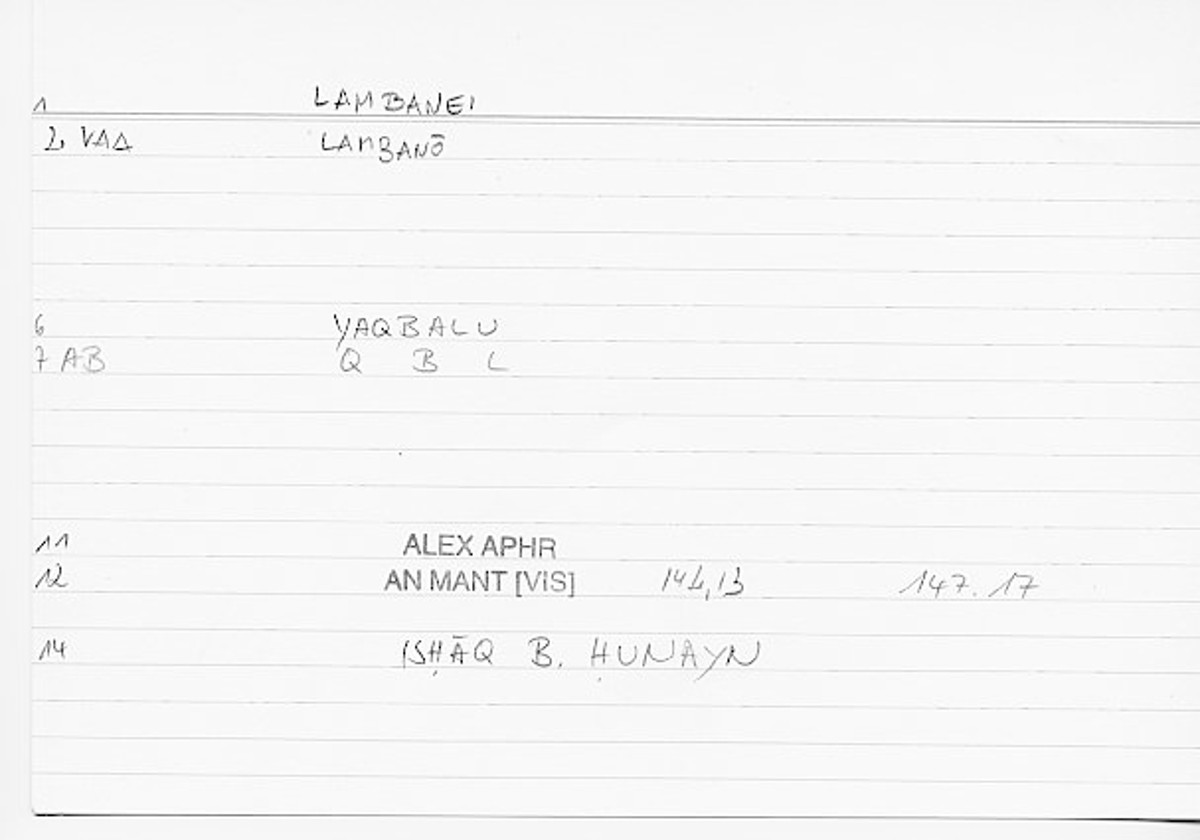 1 LAMBANEI
2 VAA LAMBANŌ
6 YAQBALU
7 AB Q B L
11 ALEX APHR
12 AN MANT [VIS] 142,13 147.17
14 ISḤĀQ B. ḤUNAYN